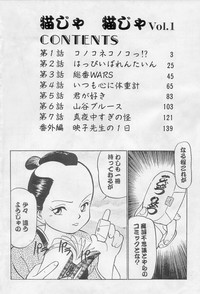 猫じゃ 猫じゃ Vol.1
CONTENTS
第1話 コノコネコノコっ!? 3
第2話 はっぴいばれんたいん 25
第3話 総番WARS 45
第4話 いつも心に体重計 65
第5話 君が好き 83
第6話 山谷ブルース 103
第7話 真夜中すぎの怪 121
番外編 映子先生の1日 139
なる程これが
コミックとな?
わしも一冊
持っておるが
少々違う
ようじゃの